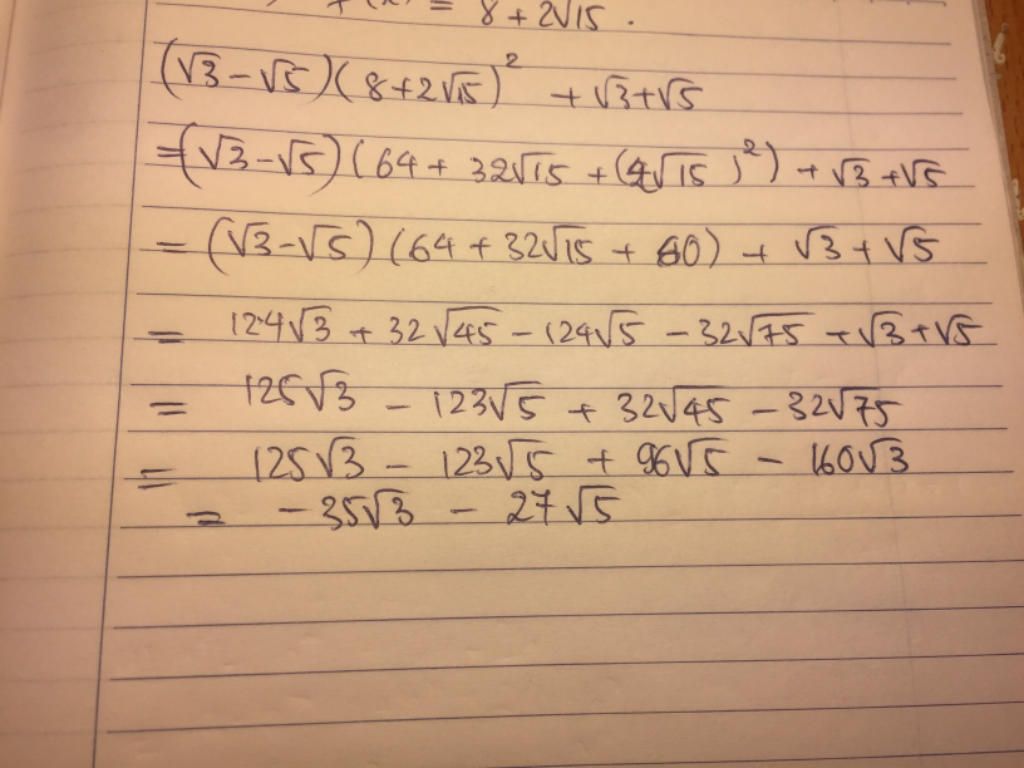 = 8 + 2√15 .
(√3 - √5)(8 + 2√15)² + √3 + √5
= (√3 - √5)(64 + 32√15 + (2√15)²) + √3 + √5
= (√3 - √5)(64 + 32√15 + 60) + √3 + √5
= 124√3 + 32√45 - 124√5 - 32√75 + √3 + √5
= 125√3 - 123√5 + 32√45 - 32√75
= 125√3 - 123√5 + 96√5 - 160√3
= -35√3 - 27√5